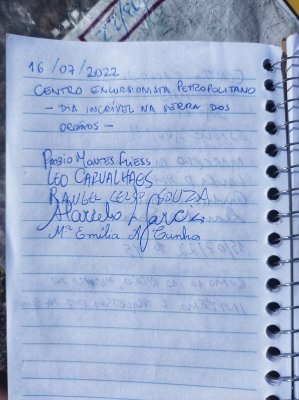 16/07/2022
CENTRO EXCURSIONISTA PETROPOLITANO
- DIA INCRÍVEL NA SERRA DOS
ORGÃOS -
Fabio Montes Fliess
LEO CARVALHAES
RAUGEL CELSO SOUZA
Mª Emília A Cunha